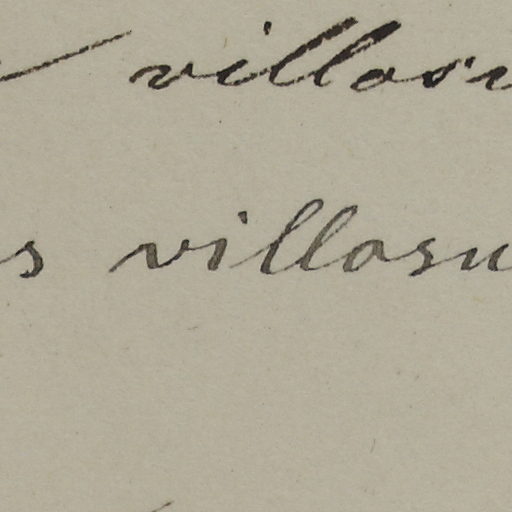 villosu
s villosu